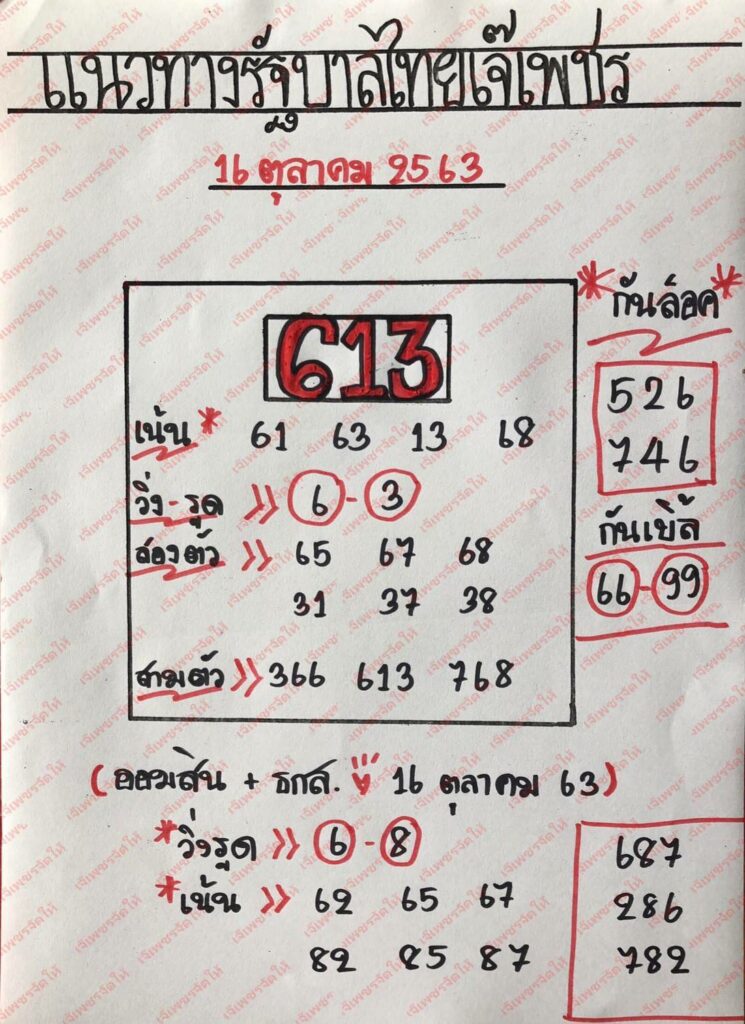 แนวทางรัฐบาลไทยเจ๊เพชร
16 ตุลาคม 2563
613
เน้น* 61 63 13 68
วิ่ง-รูด » 6 - 3
สองตัว » 65 67 68
31 37 38
สามตัว » 366 613 768
*กันล็อค*
526
746
กันเบิ้ล
66-99
(ออมสิน + ธกส. 16 ตุลาคม 63)
*วิ่งรูด » 6 - 8
*เน้น » 62 65 67
82 85 87
687
286
782
เจ๊เพชรจัดให้